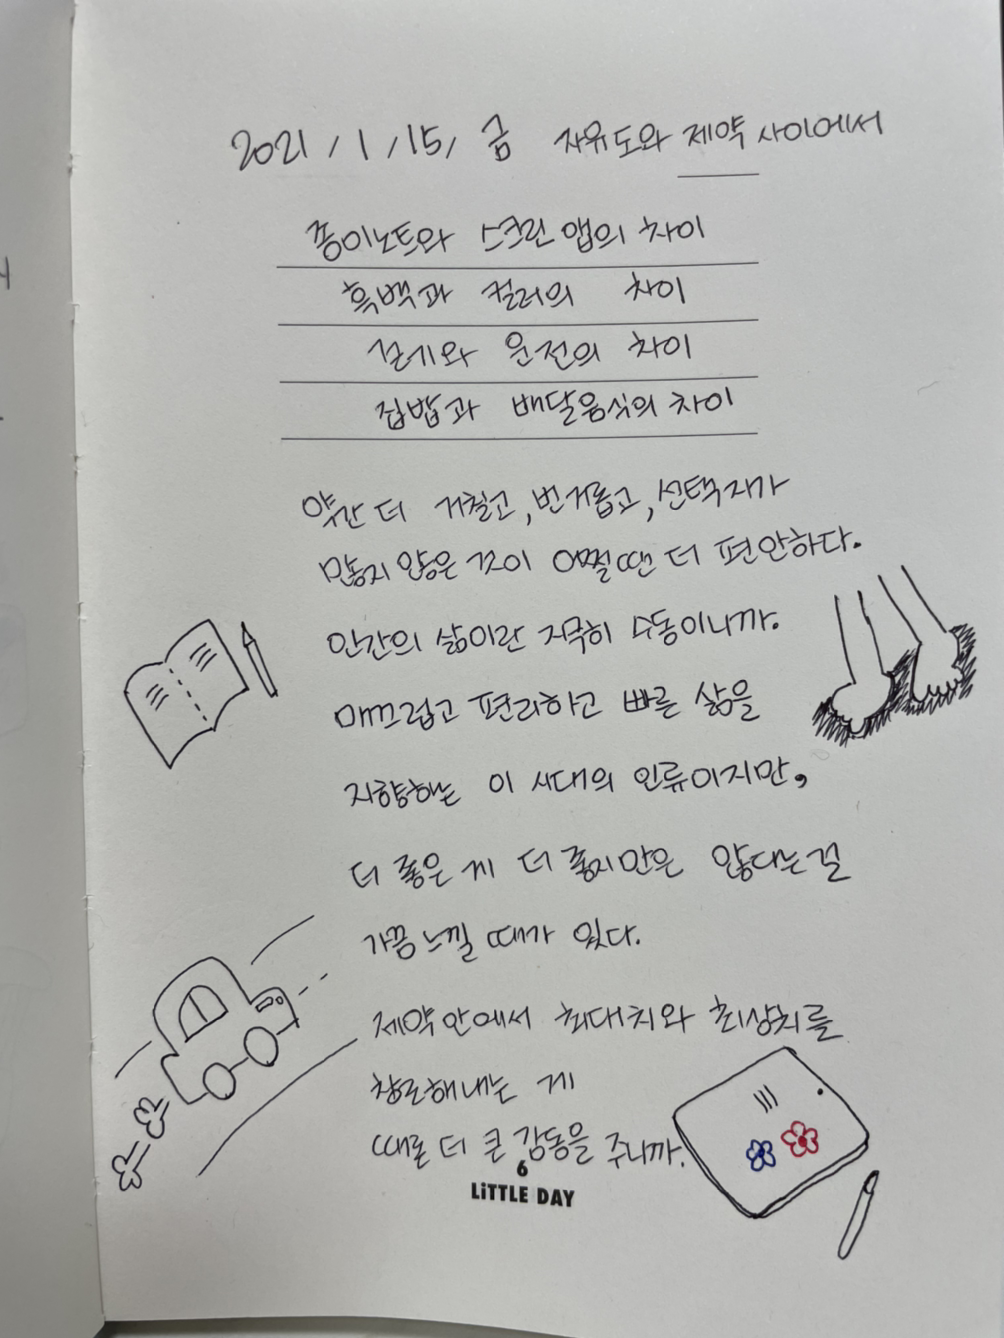 2021/1/15/ 금 자유도와 제약 사이에서
종이노트와 스크린 앱의 차이
흑백과 컬러의 차이
걷기와 운전의 차이
집밥과 배달음식의 차이
약간 더 거칠고, 번거롭고, 선택지가
많지 않은 것이 어쩔땐 더 편안하다.
인간의 삶이란 지극히 수동이니까.
매끄럽고 편리하고 빠른 삶을
지향하는 이 시대의 인류이지만,
더 좋은 게 더 좋지만은 않다는걸
가끔 느낄 때가 있다.
제약 안에서 최대치와 최상치를
창조해내는 게
때로 더 큰 감동을 주니까.
6
LiTTLE DAY